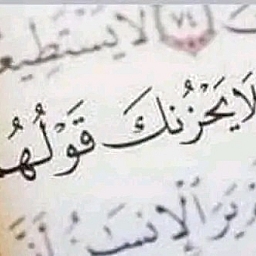 ٧٤ لَا يَسْتَطِيع
لَا يَحْزُنكَ قَوْلُهُ
يَرَ ٱلْإِنسَٰنُ أَنَّ